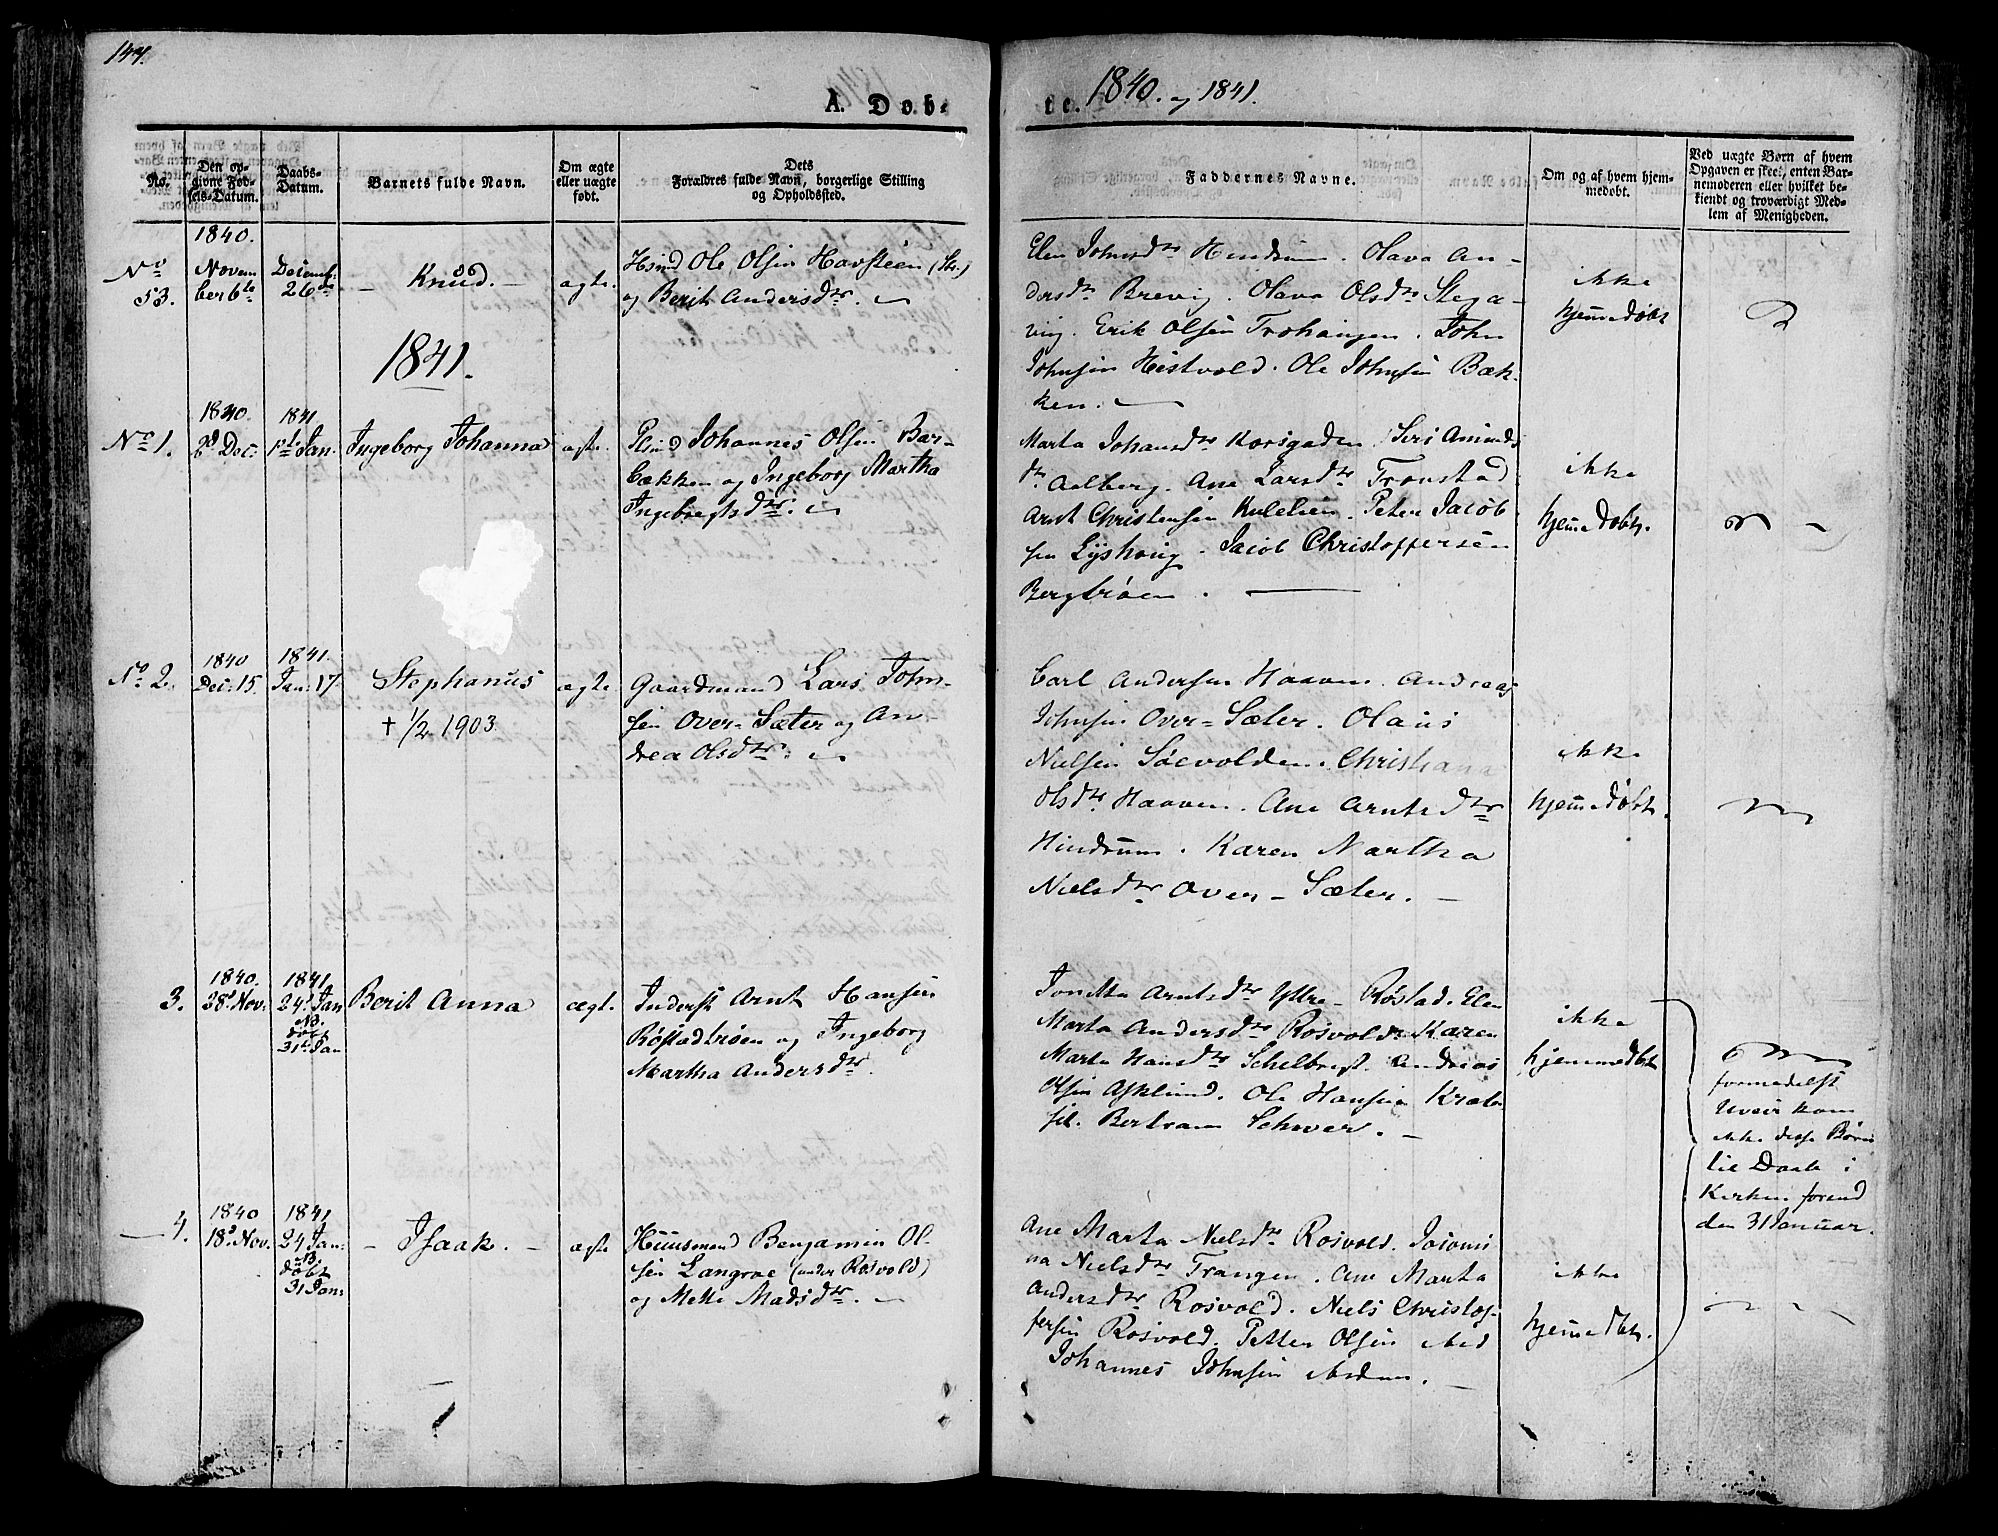 144.
A. Døb-
te. 1840. og 1841.
No.
Den op-
givne Fød-
sels-Datum.
Daabs-
Datum.
Barnets fulde Navn.
Om ægte
eller uægte
født.
Dets
Forældres fulde Navn, borgerlige Stilling
og Opholdssted.
Faddernes Navne.
Om og af hvem hjem-
medøbt.
Ved uægte Børn af hvem
Opgaven er skeet, enten Bar-
nemoderen eller hvilket be-
kiendt og troværdigt Med-
lem af Menigheden.
No
53.
1840.
Novem
ber 6te
Decemb.
26de
Knud.
ægte.
Hsmd Ole Olsen Havsteen (Str.)
og Berit Andersdtr.
Elen Johnsdtr Hindrum. Olava An-
dersdtr Brevig. Olava Olsdtr Stega-
ving. Erik Olsen Trohaugen. John
Johnsen Hestvold. Ole Johnsen Bæk-
ken.
ikke
hjemedøbt
1841.
No 1.
1840.
Dec:
1841
1ste Jan.
Ingeborg Johanna
ægte.
Plsmd Johannes Olsen Bar-
bækken og Ingeborg Martha
Ingebregtsdtr.
Marta Johansdtr Korsgaden. Siri Amunds
dtr Aalberg. Ane Larsdtr Tronstad
Arnt Christensen Kulelien. Peter Jacob
sen Lyshoug. Jacob Christoffersen
Bergtrøen.
ikke
hjemedøbt.
No 2.
1840
Dec: 15.
1841.
Jan: 17
Stephanus
† 1/2 1903.
ægte
Gaardmand Lars John-
sen Over-Sæter og An-
drea Olsdtr.
Carl Andersen Haaven. Andreas
Johnsen Over-Sæter. Olaus
Nielsen Soevolden. Christiana
Olsdtr Haaven. Ane Arntsdtr
Hindrum. Karen Martha
Nielsdtr Over-Sæter.
ikke
hjemedøbt.
3.
1840.
28de Nov.
1841
24de Jan
NB.
døbt
31te Jan
Berit Anna
ægt.
Inderst Arnt Hansen
Røstadtrøen og Ingeborg
Martha Andersdtr.
Jonetta Arntsdtr Yttre-Røstad. Elen
Marta Andersdtr Rosvold. Karen
Marta Hansdtr Schelbregt. Andreas
Olsen Asklund. Ole Hansen Kræte-
sel. Bertram Schwer.
ikke
hjemmedbt
formedelst
Uveir kom
ikke disse Børn
til Daab i
Kirken forend
den 31 Januar.
4.
1840
18de Nov.
1841
24 Jan:
NB.
døbt
31 Jan:
Isaak.
ægte
Huusmand Benjamin Ol-
sen Langroe (under Rosvold)
og Mette Madsdtr.
Ane Marta Nielsdtr Rosvold. Jocomi
na Nielsdtr Trangen. Ane Marta
Andersdtr Rosvold. Niels Christof-
fersen Rosvold. Petter Olsen
Johannes Johnsen
ikke
hjemedbt.